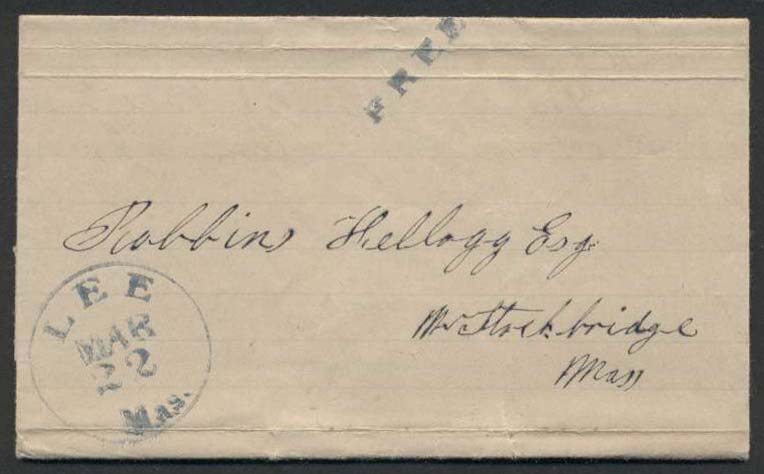 FREE
Robbins Kellogg Esq.
W. Stockbridge
Mass
LEE
MAR
22
Mas.